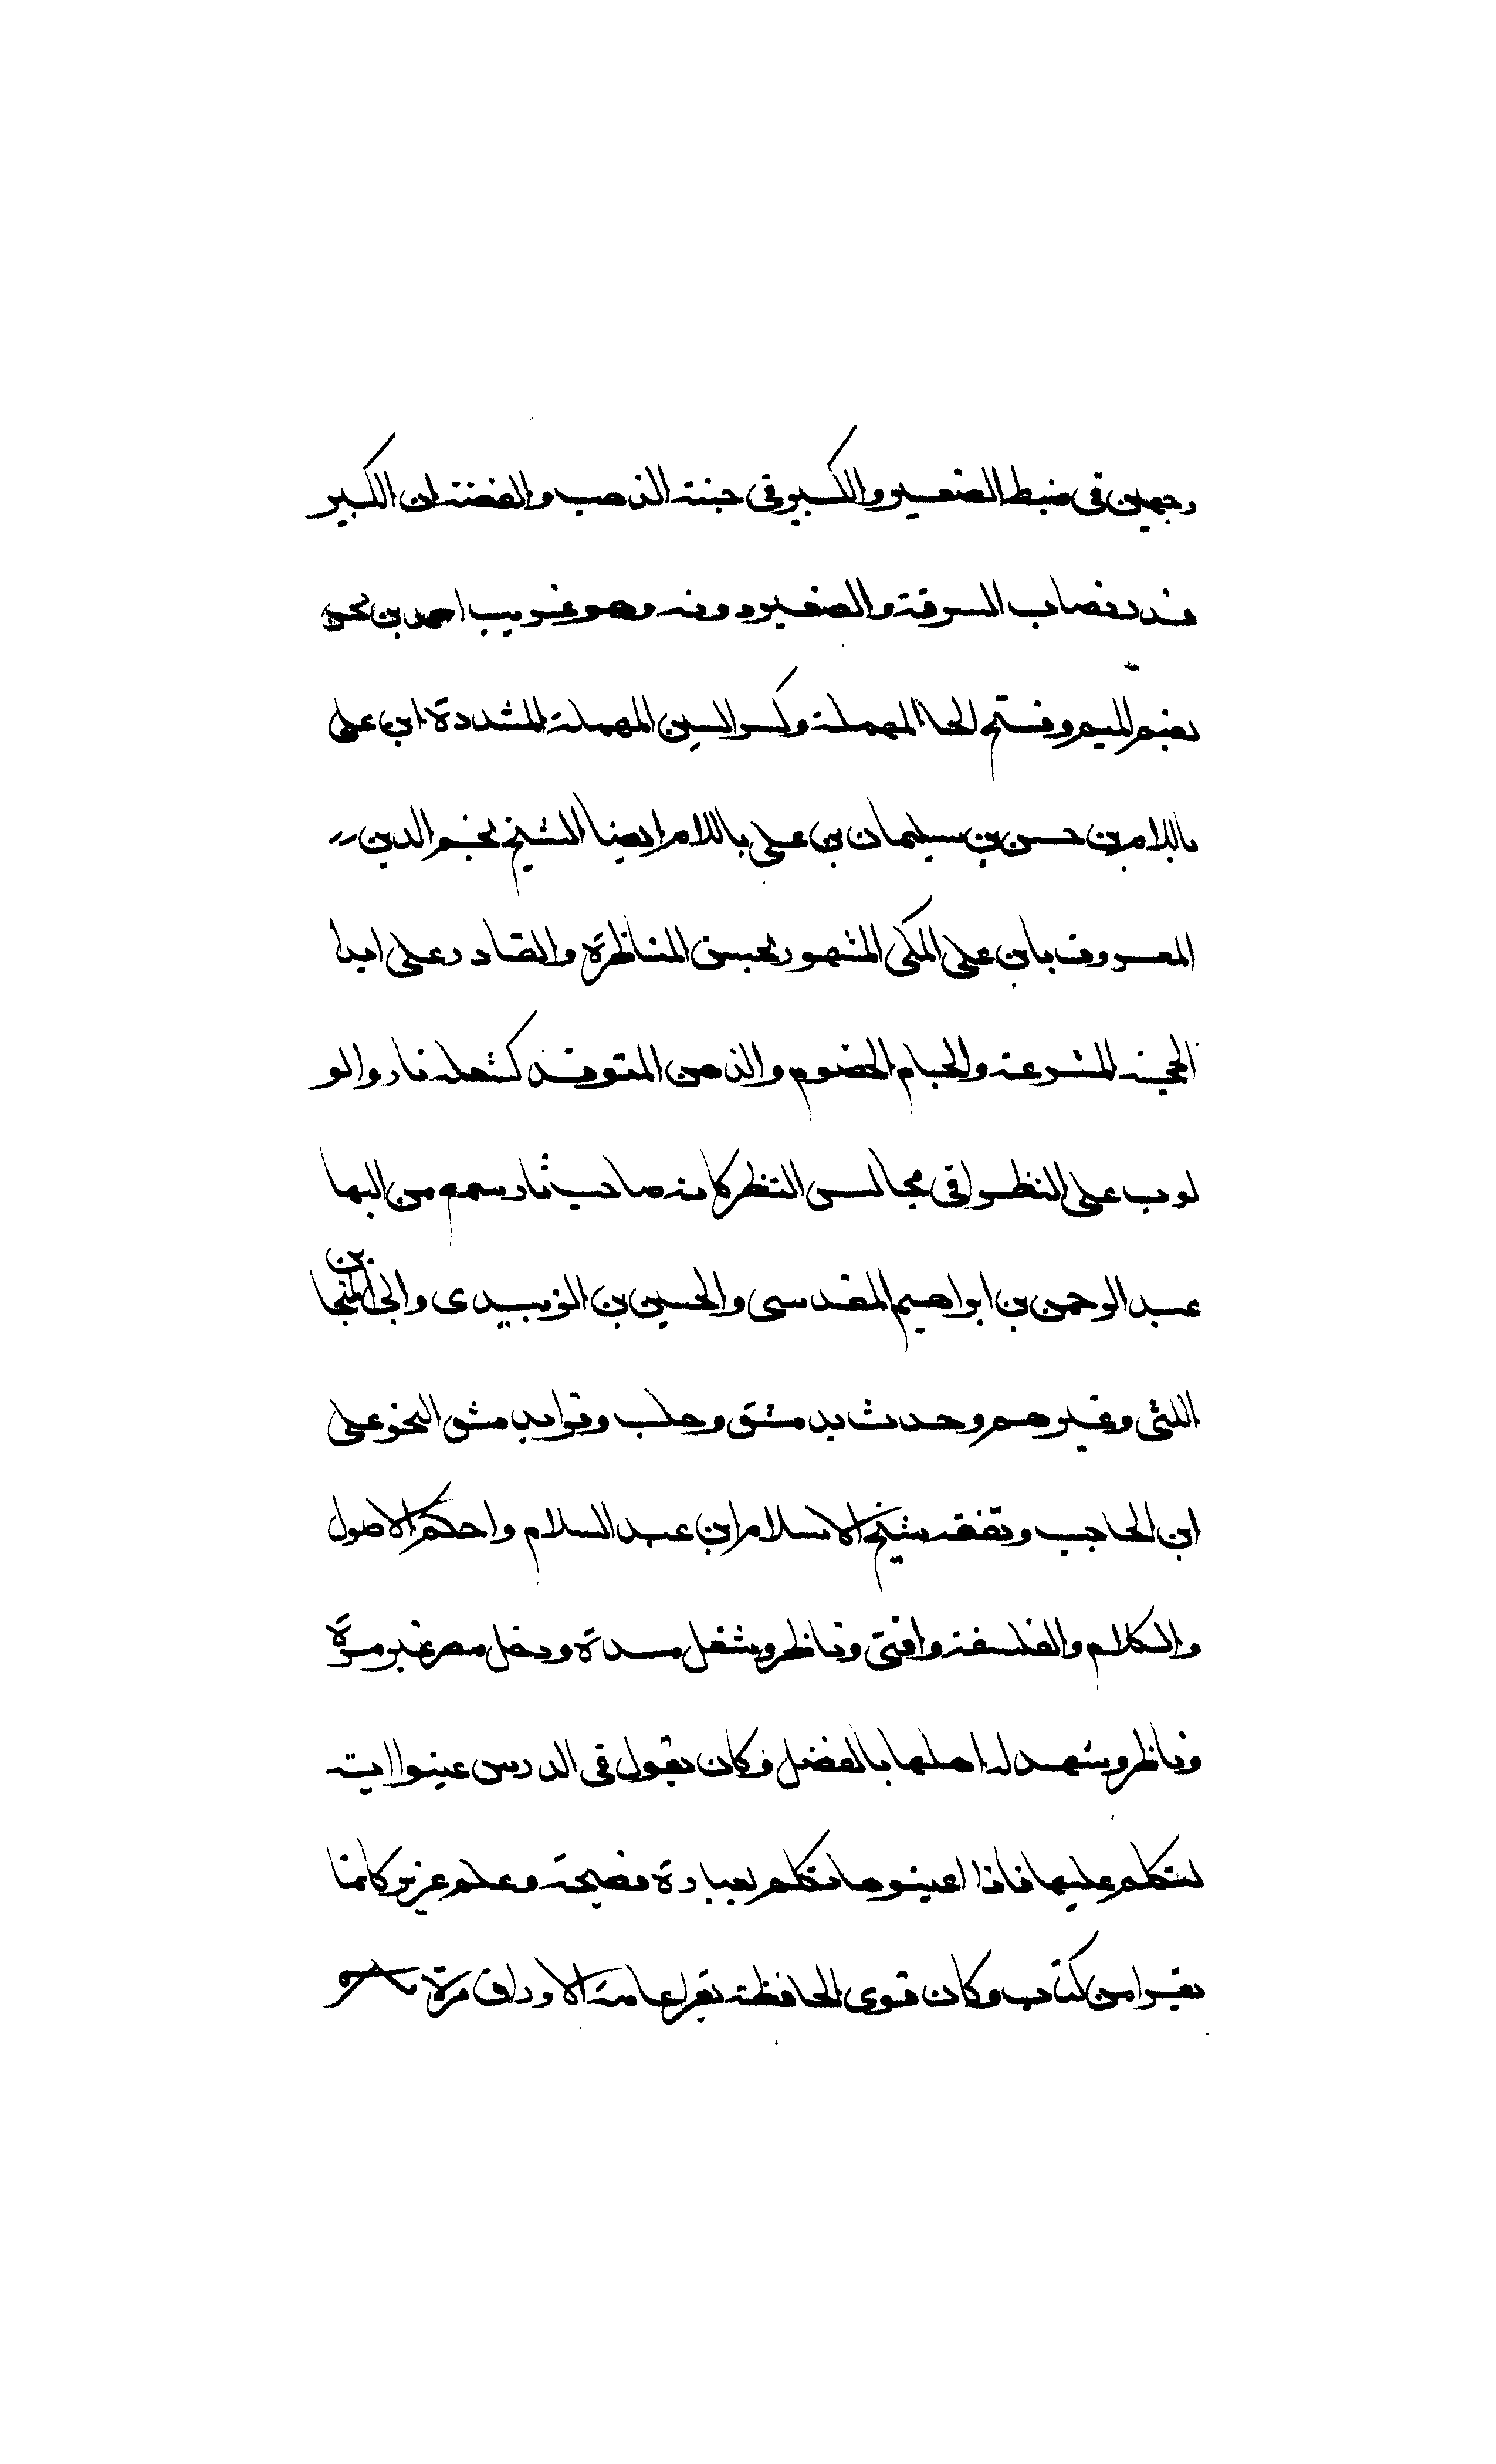 وجهين في ضبط الصغير والكبير في ضبة الذهب والفضة ان الكبير
قدر نصاب السرقة والصغير دونه وهو غريب احمد بن محسن
بضم الميم وفتح الحا المهملة وكسر السين المهملة المشددة ابن علي
باللام بن حسن بن سليمان بن علي باللام ايضا الشيخ نجم الدين
المعروف بابن علي المكي المشهور بحسن المناظرة والقادر على ابدا
الحجة المسرعة والجام الخصوم والذهن المتوقد كشعلة نار والو
ثوب على النظرا في مجالس النظر كانه صاحب ثار سمع من البها
عبد الرحمن بن ابراهيم المقدسي والحسين بن الزبيدي وابي المنجا بن
اللتي وغيرهم وحدث بدمشق وحلب وقرا بدمشق النحو على
ابن الحاجب وتفقه بشيخ الاسلام ابن عبد السلام واحكم الاصول
والكلام والفلسفة وافتى وناظر وشغل مدة ودخل مصر غير مرة
وناظر وشهد له اهلها بالفضل وكان يقول في الدرس عينوا اية
لنتكلم عليها فاذا عينوها تكلم بعبارة فصيحة وعلم غزير كانما
يقرا من كتاب وكان قوي الحافظة يقرا عامة الاوراق مرة